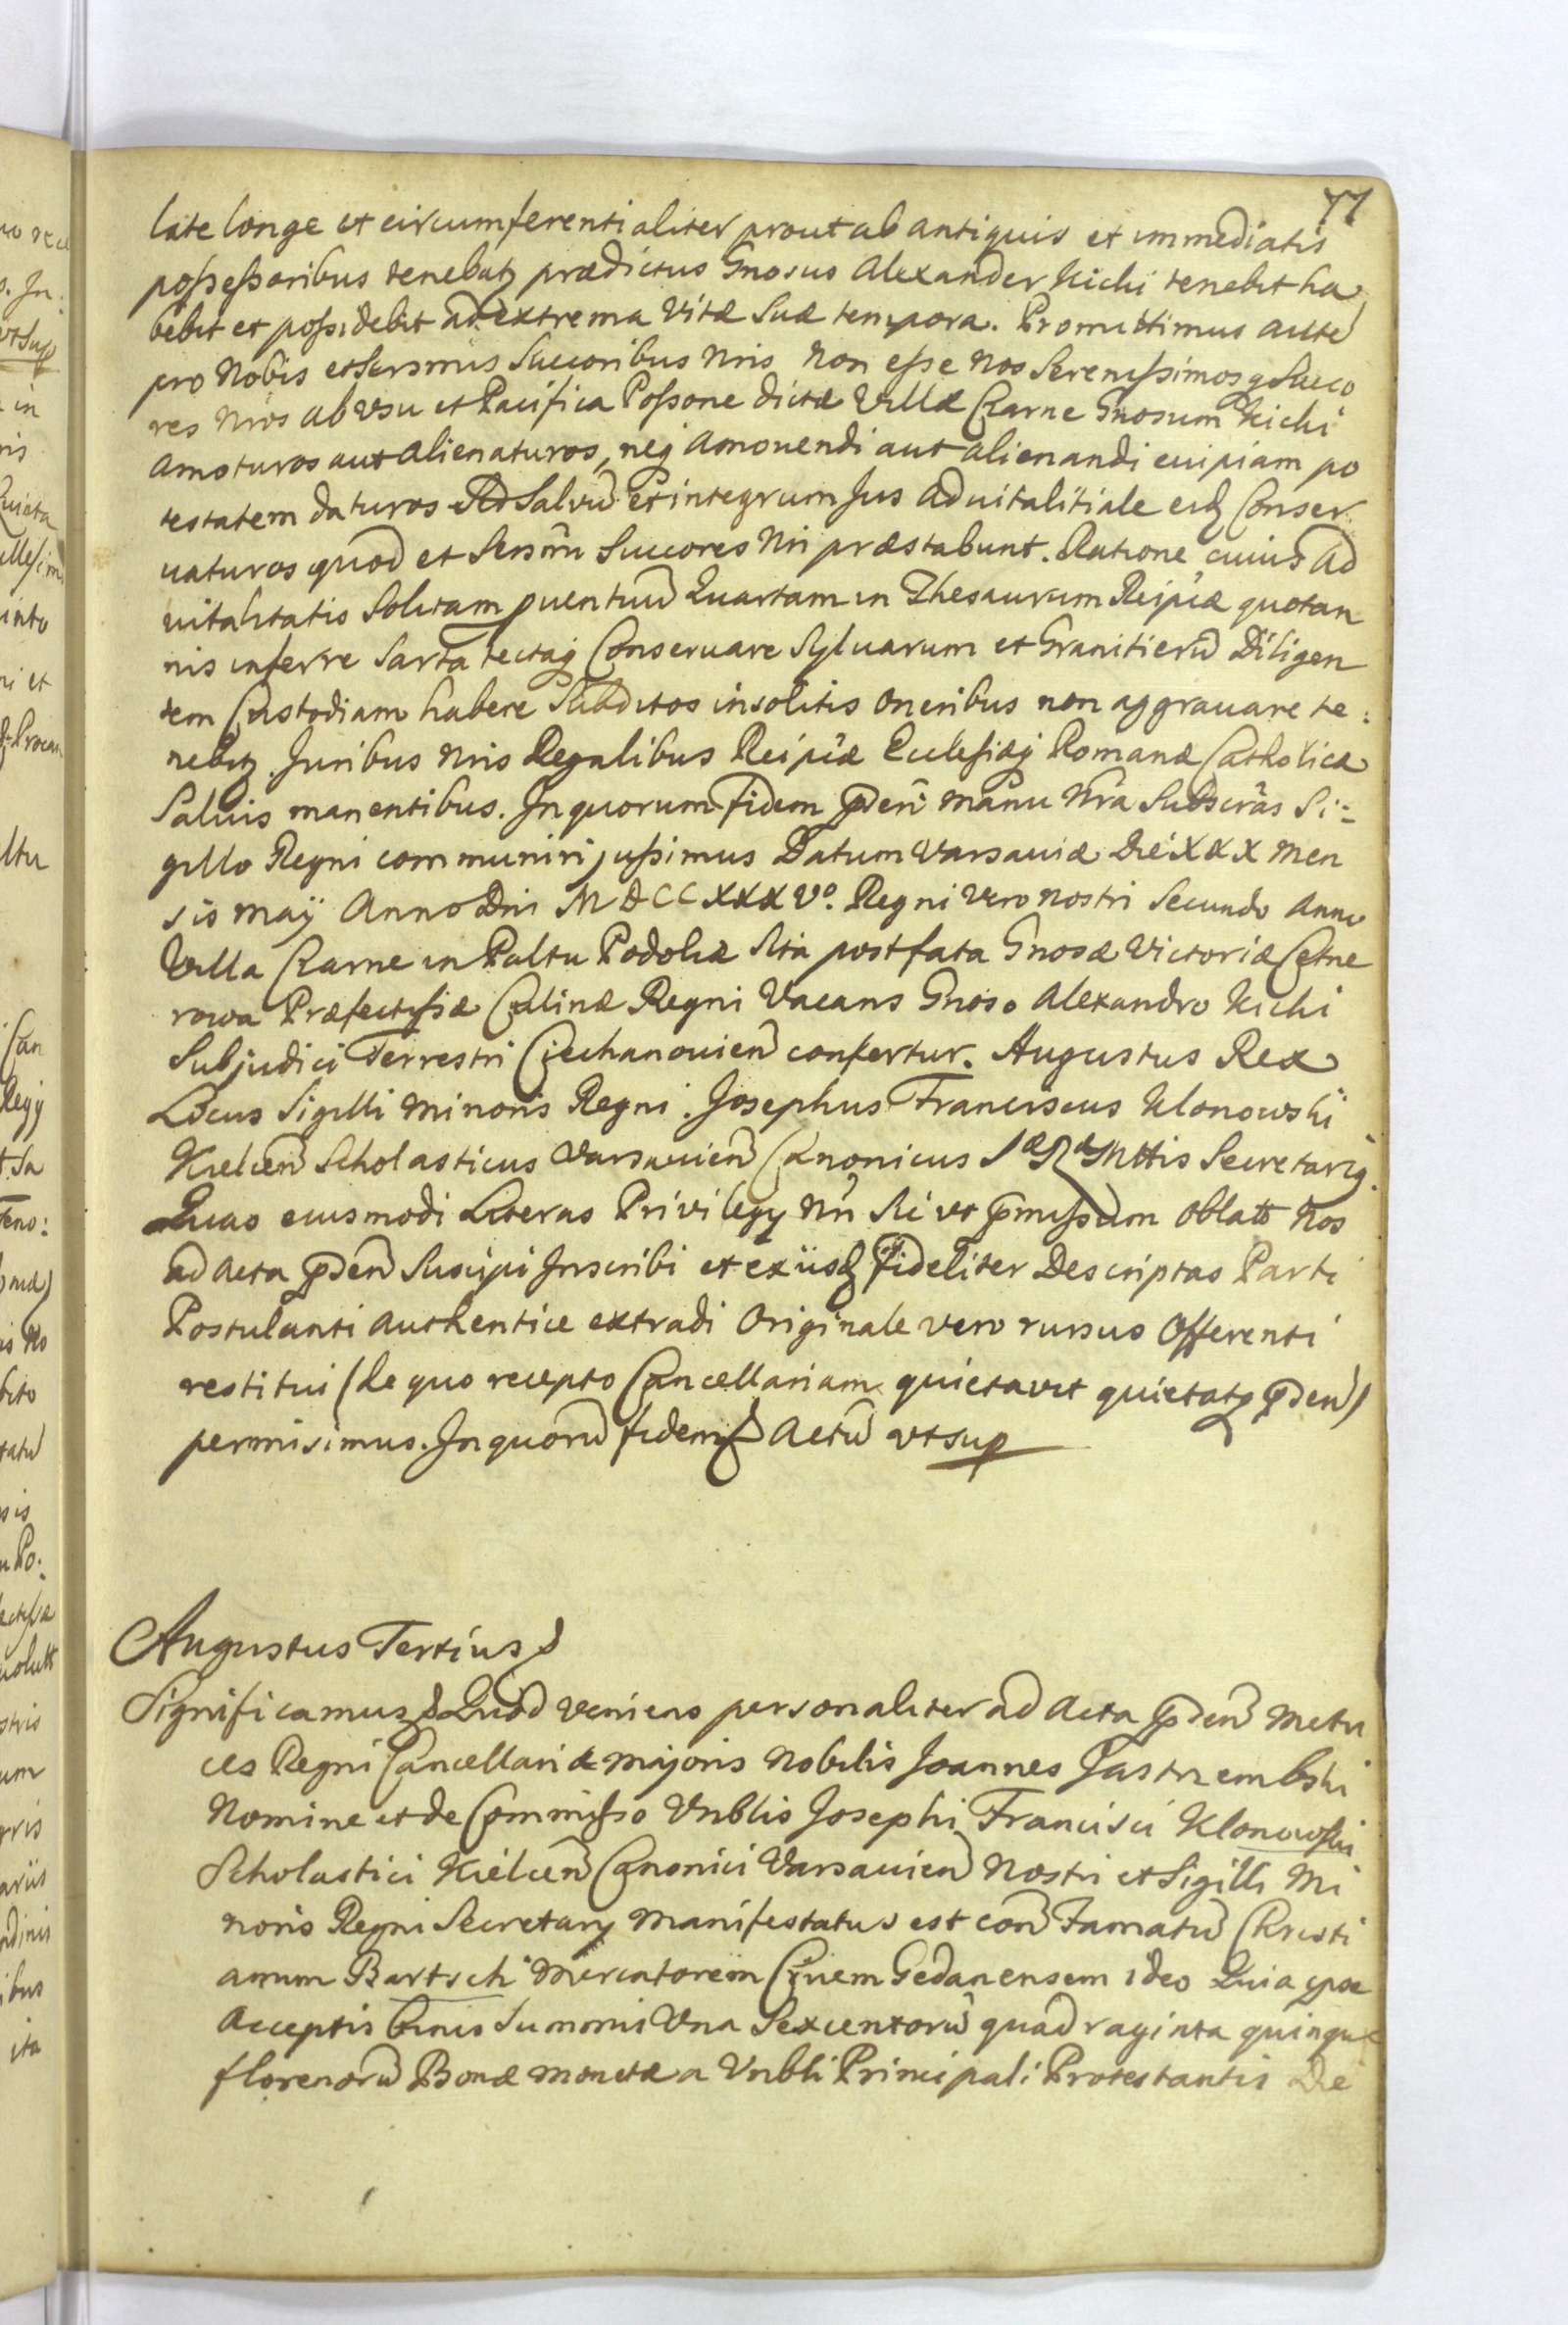 77
late longe et circumferentialiter prout ab antiquis et immediatis
possessoribus tenebatz prædictus Gnosus Alexander Kicki tenebit ha
bebit et possidebit ad extrema vitæ suæ tempora. Promittimus aute
pro Nobis et Sersmis Succoribus Nris Non esse Nos Serenissimosq Succo
res Nros ab usu et Pacifica Possone dictæ Villæ Czarne Gnosum Kicki
amoturos aut alienaturos, neq amovendi aut alienandi cuipiam po
testatem daturos sed salvu et integrum Jus advitalitiale eidz Conser
vaturos quod et Sersmi Succores Nri præstabunt. Ratione cuius ad
vitalitatis Solitam pventuu Quartam in Thesaurum Reipcæ quotan
nis inferre Sarta tectaq Conservare Sylvarum et Granitieru Diligen
tem Custodiam habere Subditos insolitis oneribus non aggravare te:
nebitz. Juribus Nris Regalibus Reipcæ Ecclesiæq Romanæ Catholicæ
Salvis manentibus. In quorum fidem pden manu Nra Subscras Si:
gillo Regni communiri jussimus Datum Varsaviæ Die XXX Men
sis May Anno Dni MDCCXXXVo. Regni vero nostri Secundo Anno
Villa Czarne in Paltu Podoliæ Sita post fata Gnosæ Victoriæ Cetne
rowa Præfectissæ Calinæ Regni Vacans Gnoso Alexandro Kicki
Subjudici Terrestri Ciechanovien confertur. Augustus Rex
Locus Sigilli Minoris Regni. Josephus Franciscus Klonowski
Kielcen Scholasticus Varsavien Canonicus Sæ Ræ Mttis Secretarig.
Quas eiusmodi Literas Privilegy Nri Sic ut pmissum Oblatt Nos
ad Acta pden Suscipi Inscribi et ex iisdz fideliter Descriptas Parti
Postulanti Authentice extradi Originale vero rursus Offerenti
restitui (de quo recepto Cancellariam quietavit quietatq pden)
permisimus. In quoru fidem Actu ut sup
Augustus Tertius
Significamus Quod veniens personaliter ad Acta pden Metri
ces Regni Cancellariæ Majoris Nobilis Joannes Jastrzembski
Nomine et de Commisso Vnblis Josephi Francisci Klonowski
Scholastici Kielcen Canonici Varsavien Nostri et Sigilli Mi
noris Regni Secretary Manifestatus est con Famatu Christi
anum Bartsch Mercatorem Civem Gedanensem ideo Quia ipse
Acceptis binis Summis Una Sexcentoru quadraginta quinque
florenoru Bonæ monetæ a Vnbli Principali Protestantis Die